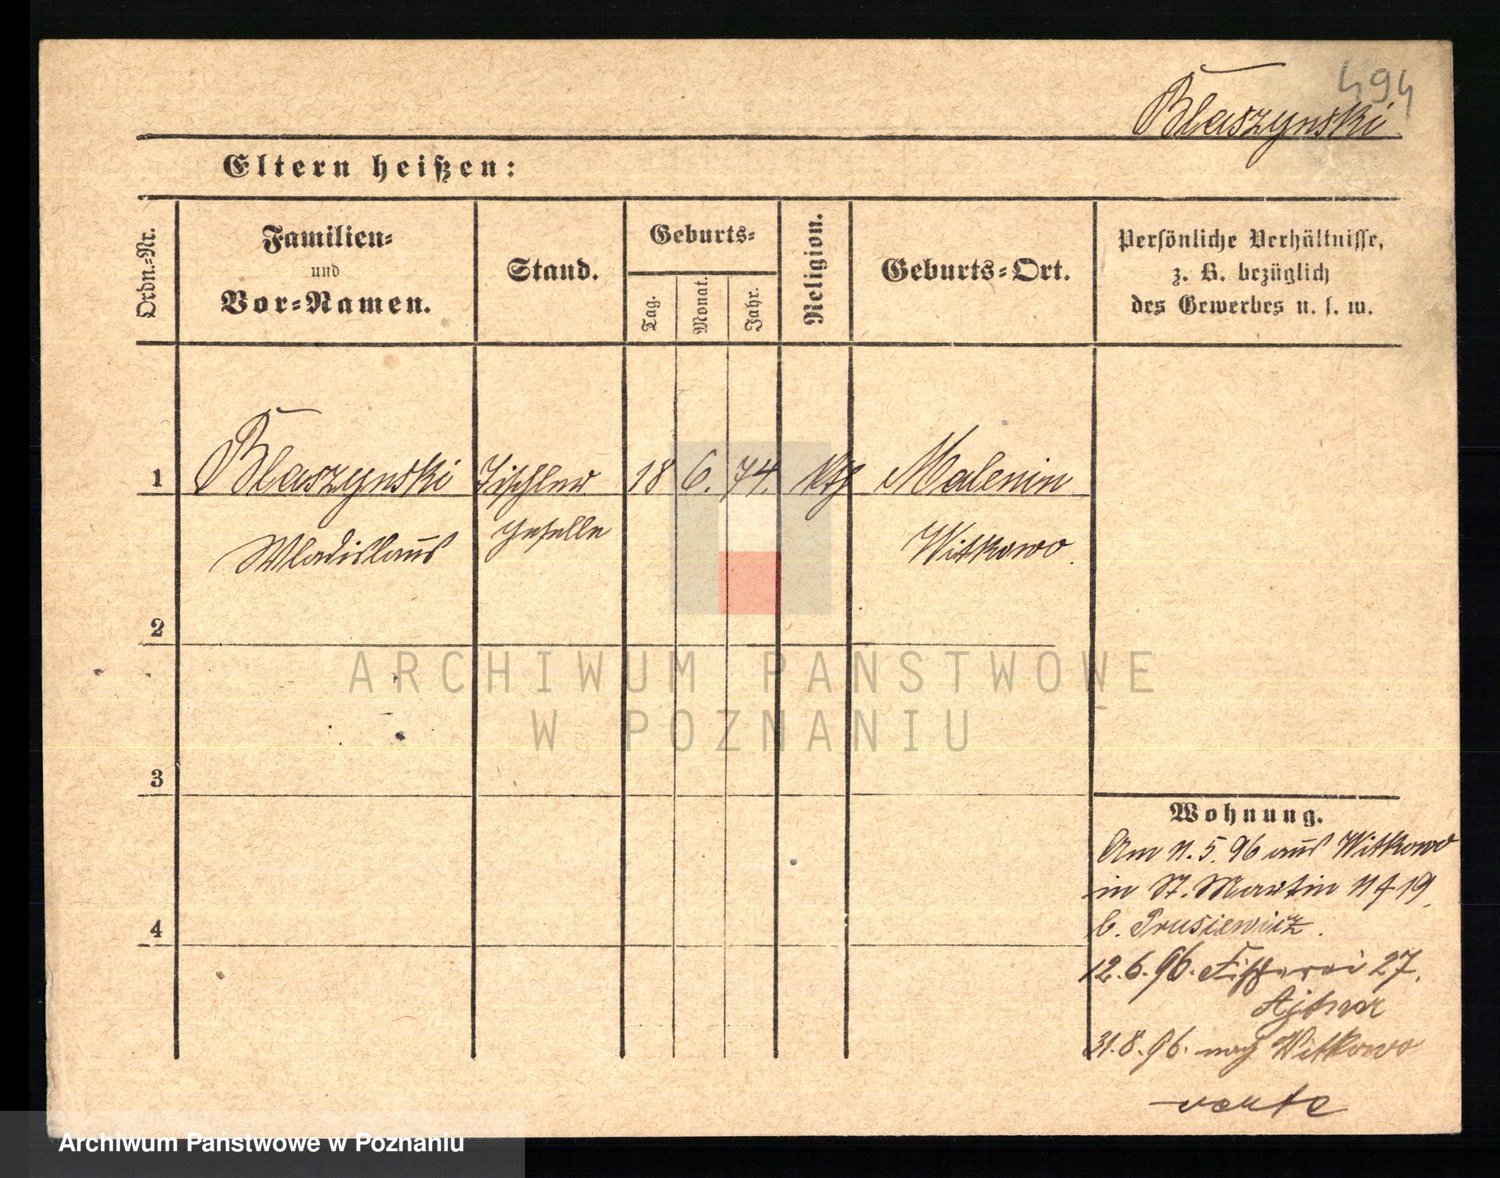 494
Blaszynski
Eltern heißen:
Ordn.-Nr.
Familien-
und
Vor-Namen.
Stand.
Geburts-
Tag.
Monat.
Jahr.
Religion.
Geburts-Ort.
Persönliche Verhältnisse,
z. B. bezüglich
des Gewerbes u. s. w.
1 Blaszynski Tischler 18 6. 74. kth Malenin
Wladislaus geselle Witkowo.
2
ARCHIWUM PAŃSTWOWE
W POZNANIU
3
Wohnung.
Am 11.5.96 aus Witkowo
in St. Martin 19
b. Prusiewicz.
4
12.6.96. Fischerei 27.
31.8.96. nach Witkowo
Archiwum Państwowe w Poznaniu